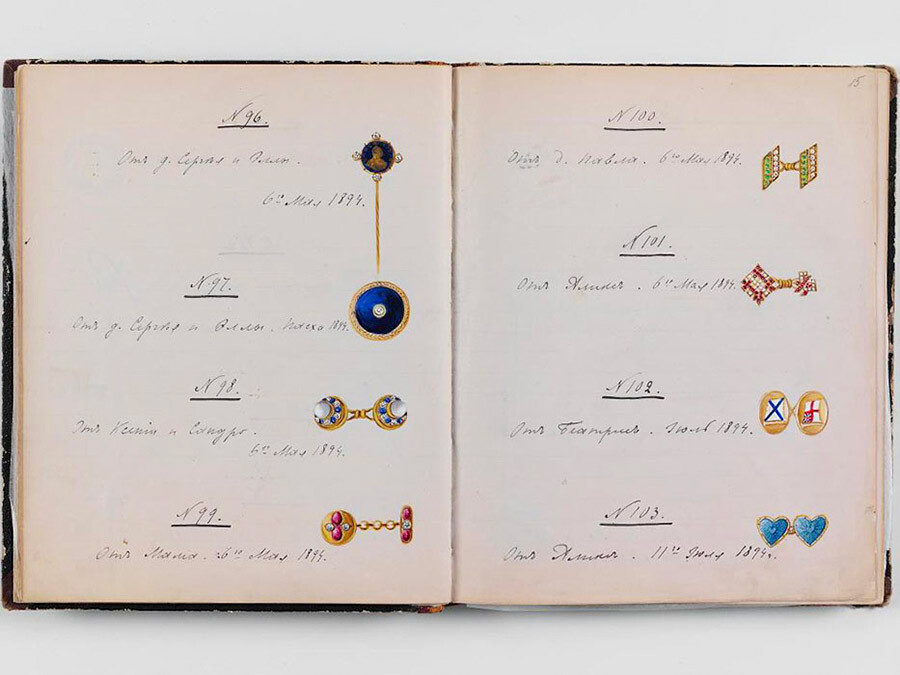 N 96.
Отъ д. Сергея и Эллы.
6го Мая 1894.
N 97.
Отъ д. Сергея и Эллы. Пасха 1894.
N 98.
Отъ Ксении и Сандро.
6го Мая 1894.
N 99.
Отъ Мама. 6го Мая 1894.
15
N 100.
Отъ д. Павла. 6го Мая 1894.
N 101.
Отъ Аликсъ. 6го Мая 1894.
N 102.
Отъ Беатрисъ. Июль 1894.
N 103.
Отъ Аликсъ. 11го Июля 1894.